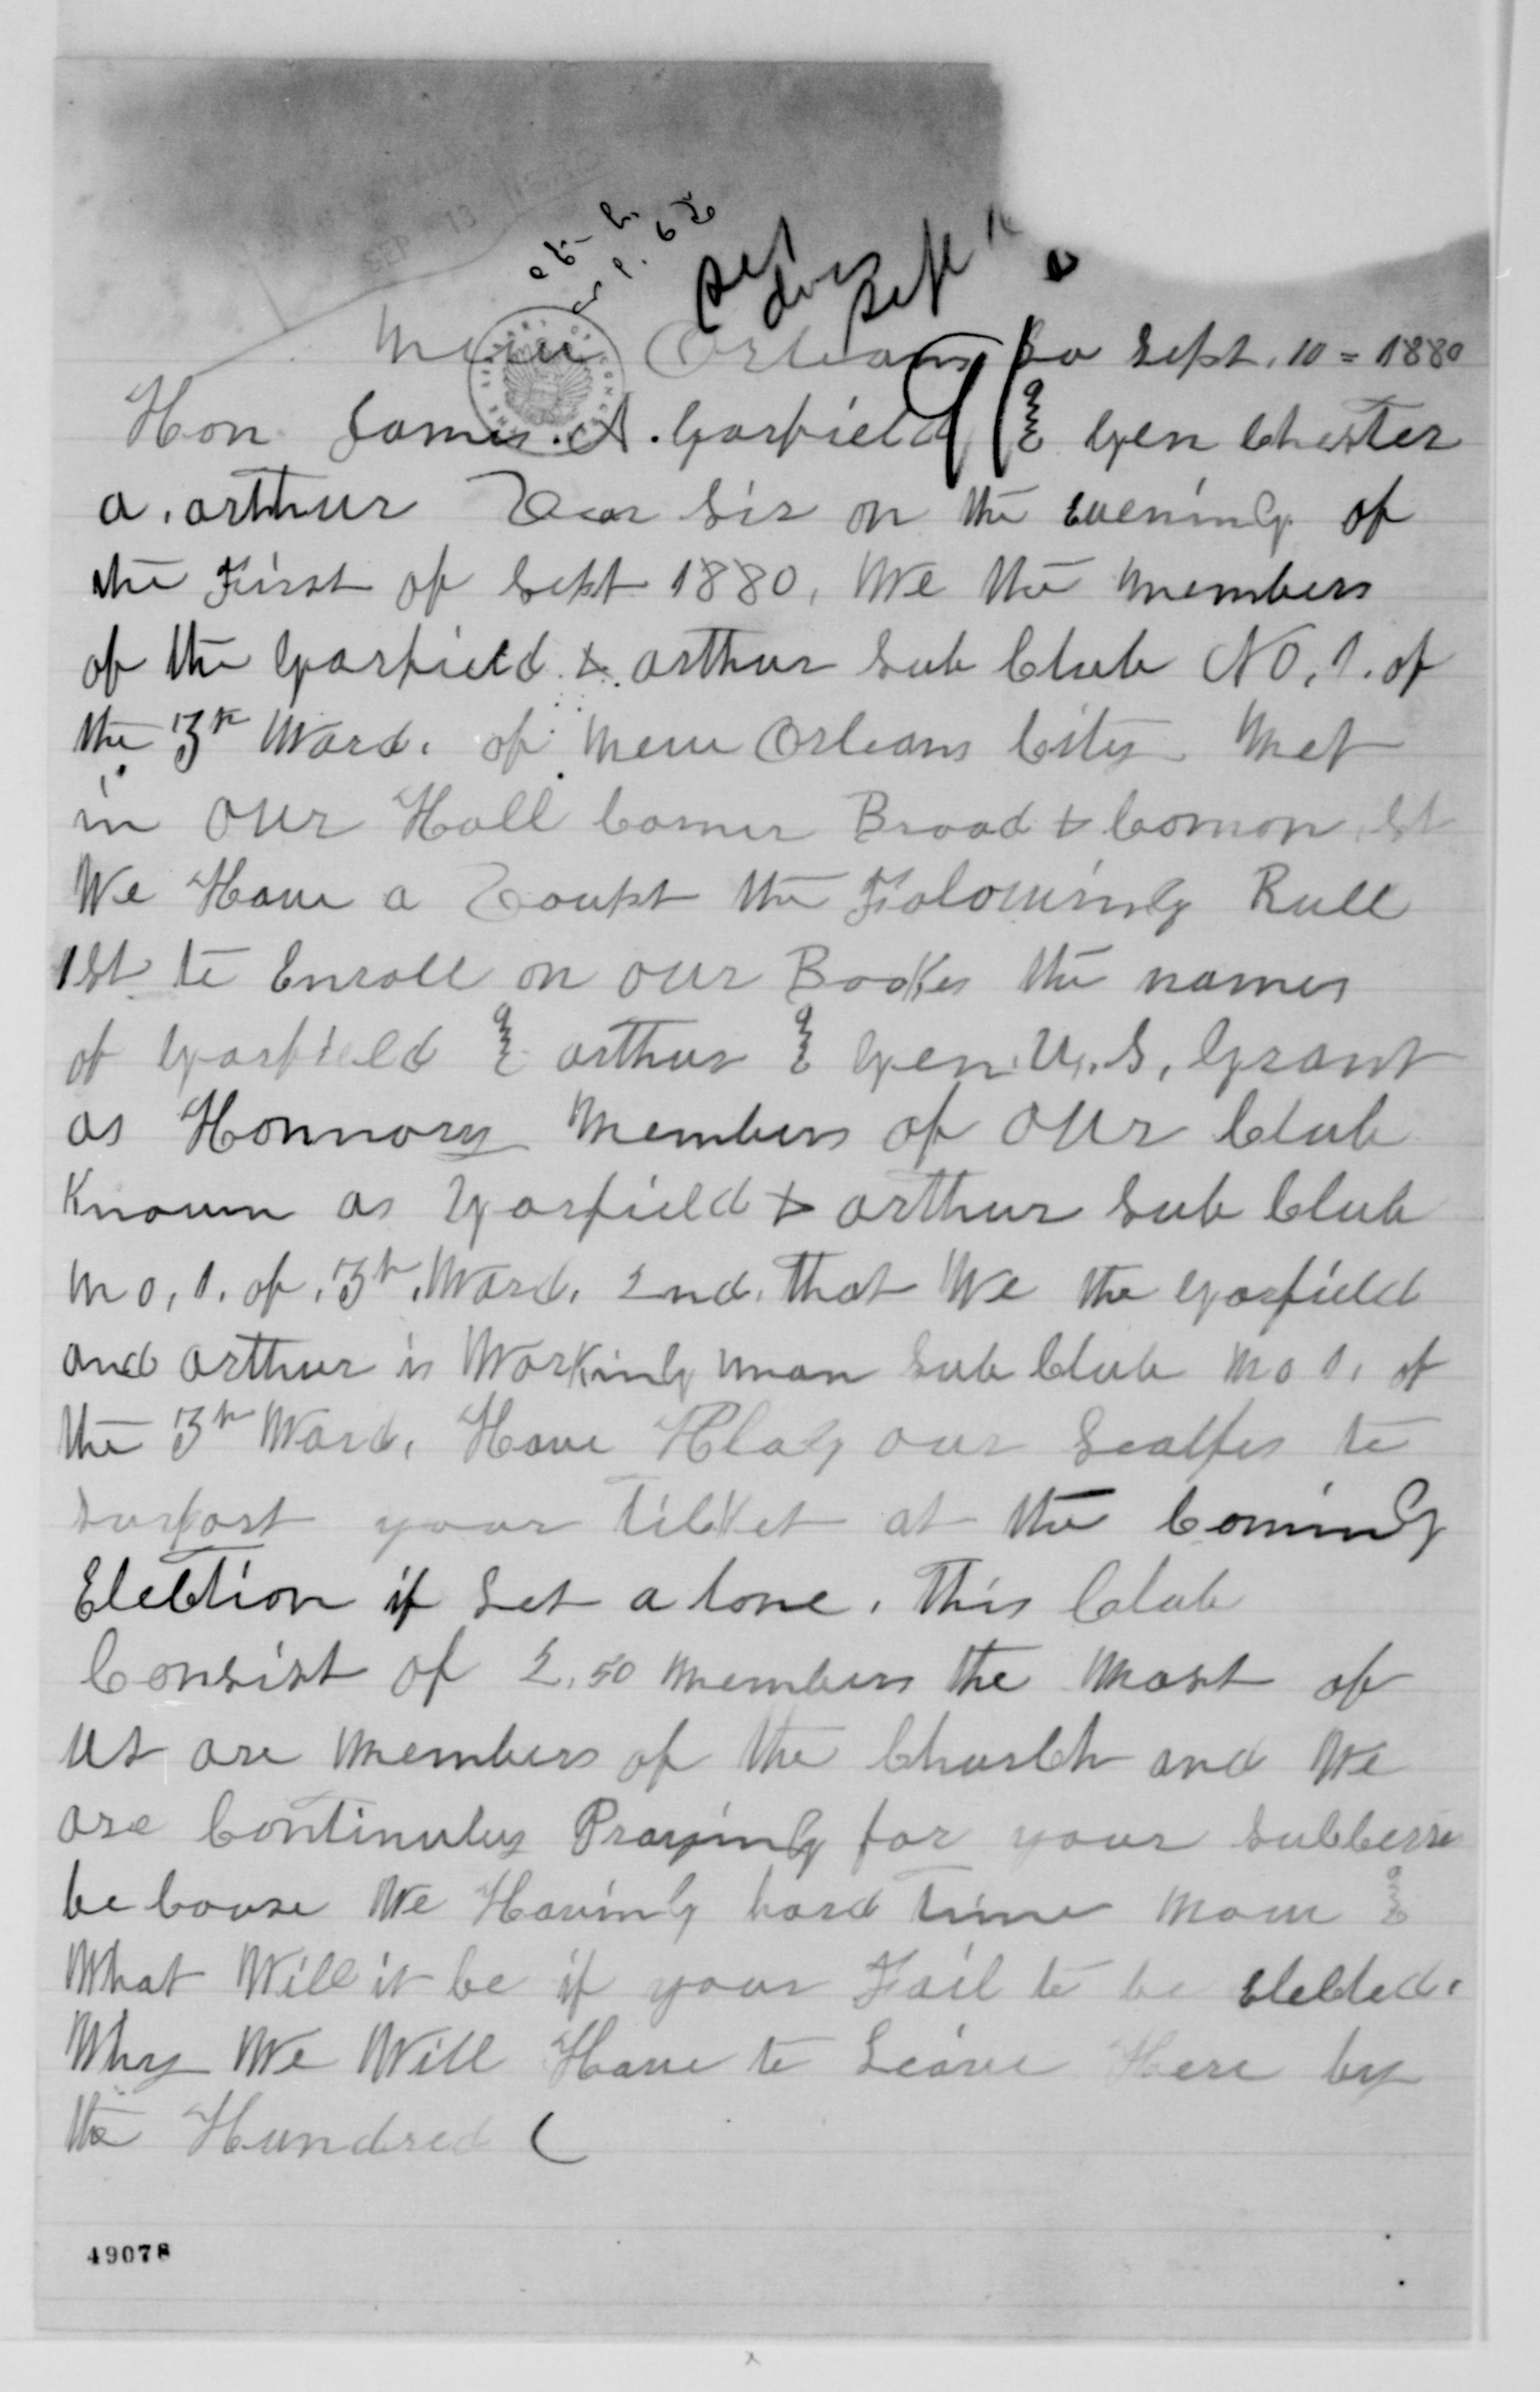 New Orleans La Sept. 10 = 1880
Hon. James. A. Garfield & Gen Chester
a. arthur Dear Sir on the evening of
the First of Sept 1880, We the members
of the Garfield & arthur Sub Club No, 1. of
the 3rd Ward. of New Orleans City Met
in our Hall Corner Broad & Comon St
We Have a Doupt the Folowing Rull
1st to Enroll on our Bookes the names
of Garfield & arthur & Gen. U. S. Grant
as Honnory members of our Club
Known as Garfield & arthur Sub Club
No, 1. of. 3rd. Ward. 2nd. That We the Garfield
and arthur is Working man Sub Club No 1. of
the 3rd Ward. Have our Sealfes to
surport your Ticket at the Coming
Election if Let a lone. This Club
Consist of 2.50 members the most of
us are members of the Church and We
are Continuley Praying for your Success
be Cause We Having hard time Now &
What Will it be if your Fail to be elected.
Why We Will Have to Leave Here by
the Hundred
49078